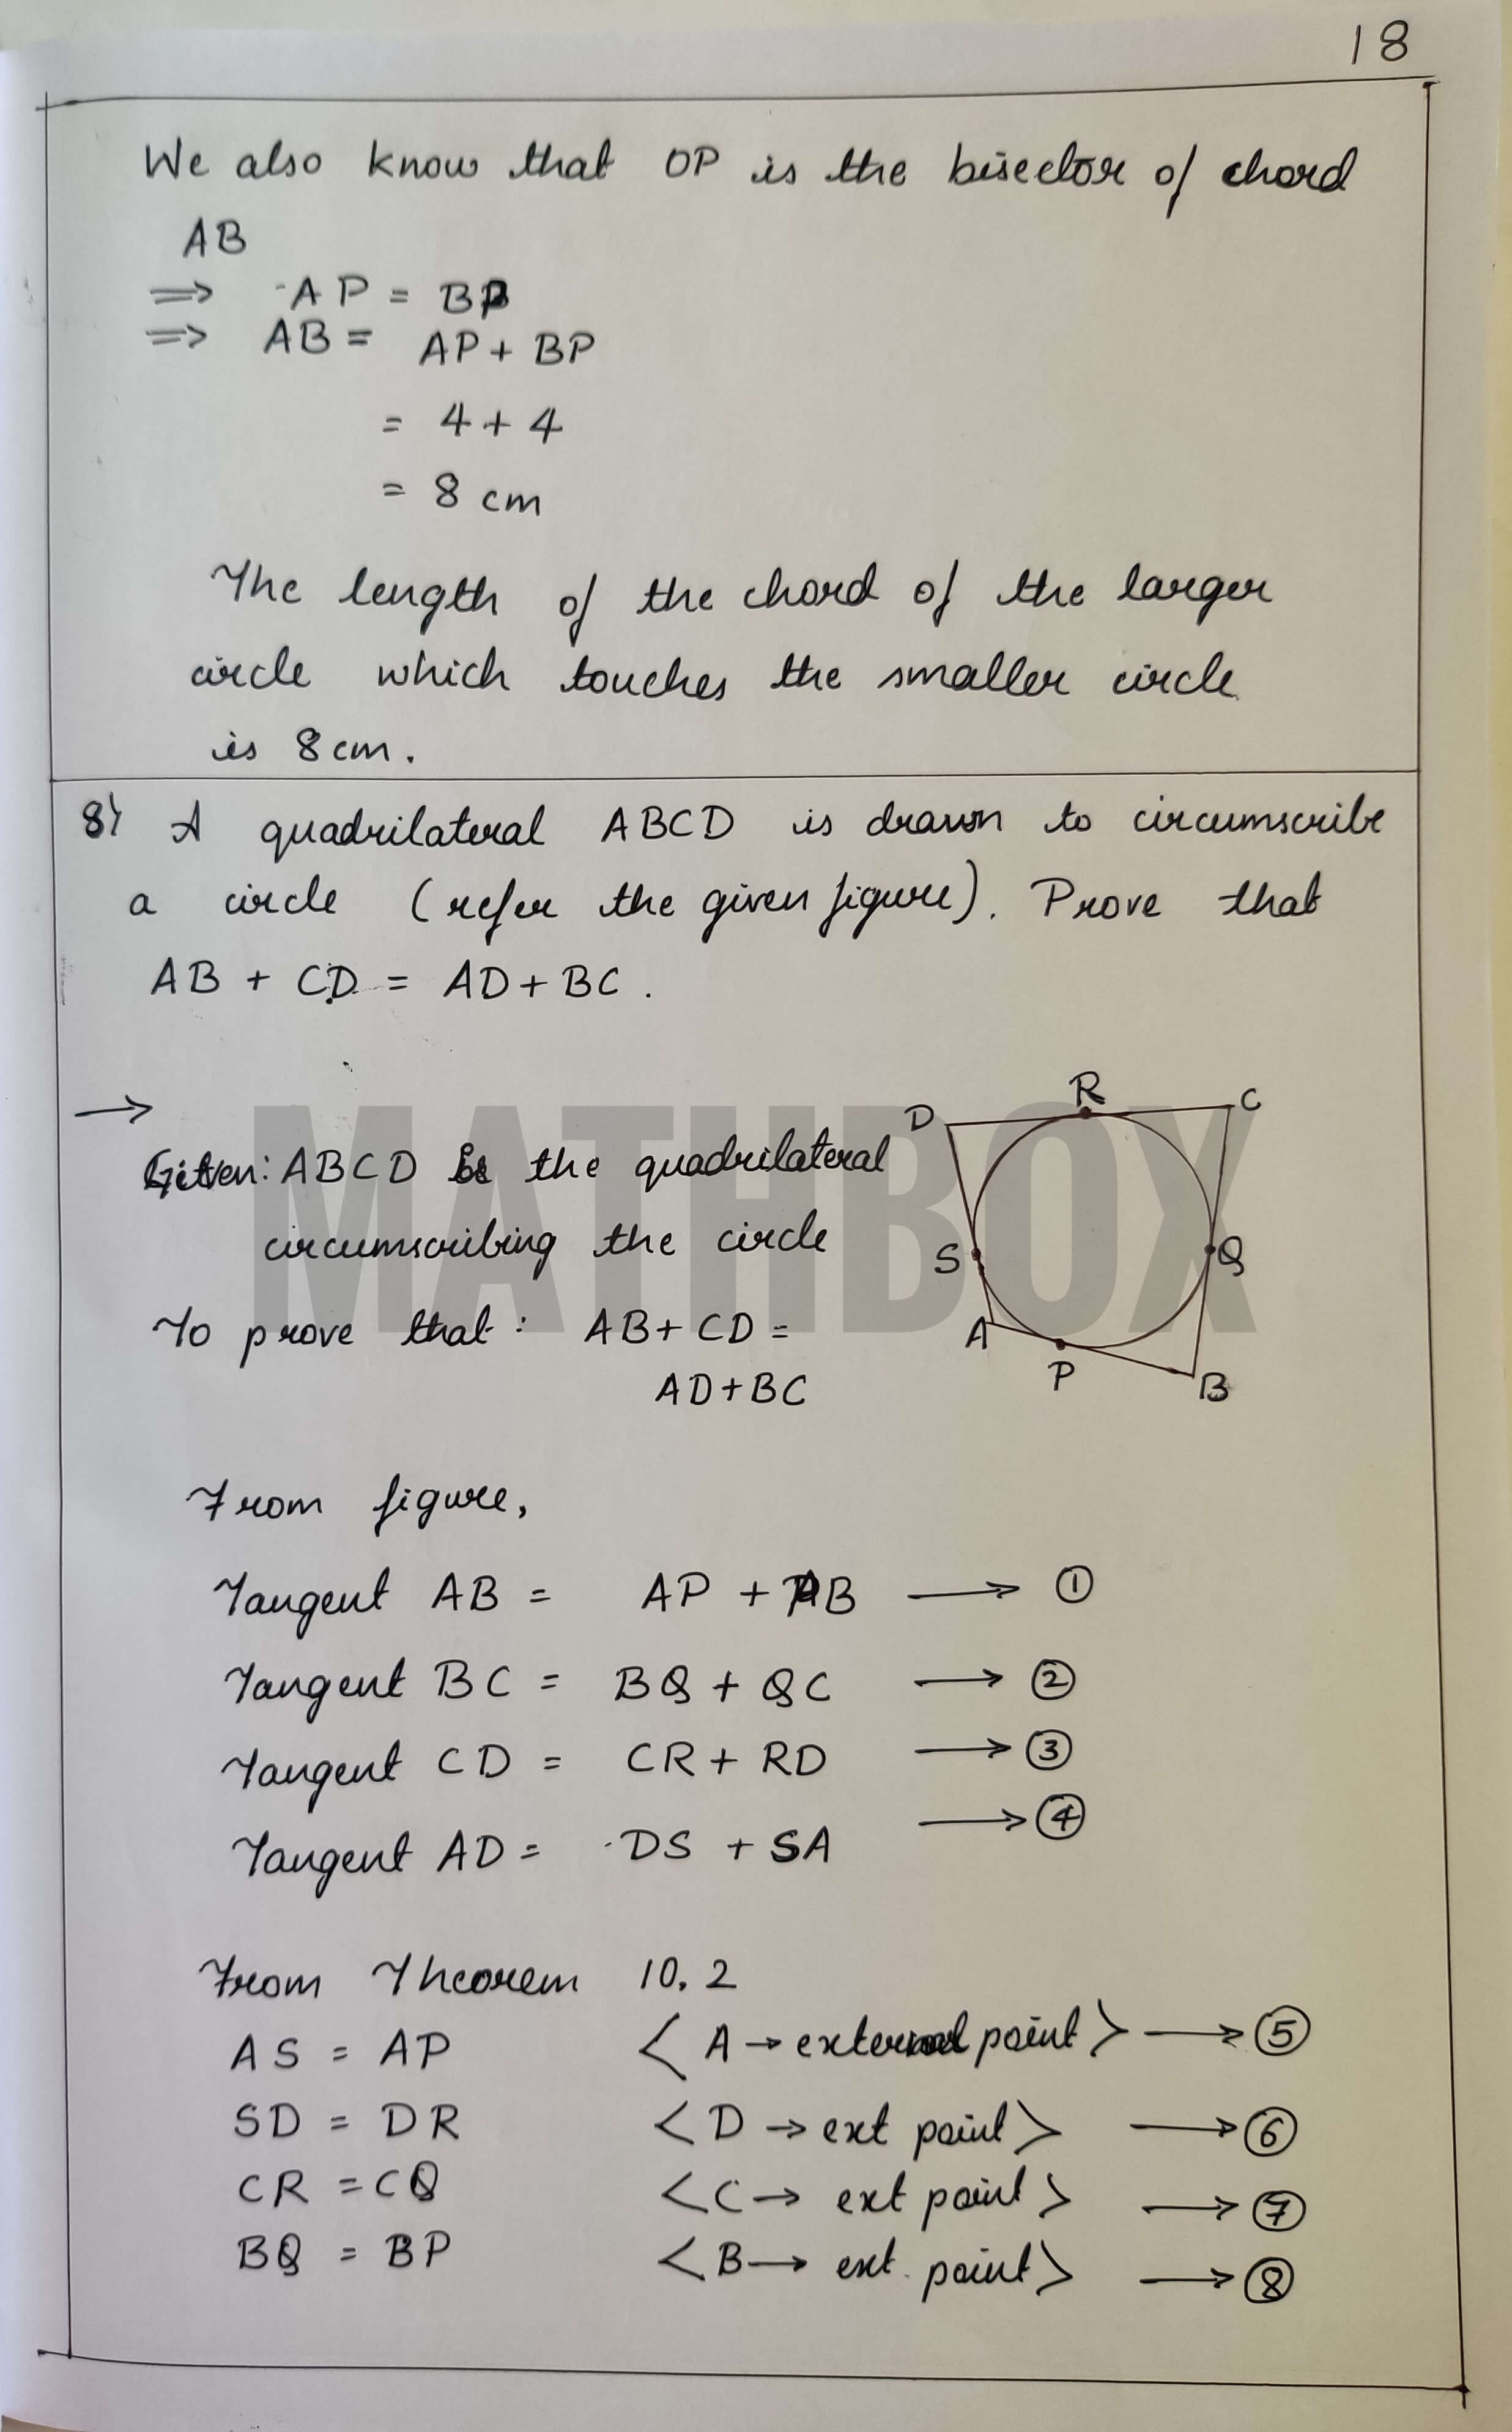 18
We also know that OP is the bisector of chord
AB
⇒ AP = BP
⇒ AB = AP + BP
= 4 + 4
= 8 cm
The length of the chord of the larger
circle which touches the smaller circle
is 8 cm.
8) A quadrilateral ABCD is drawn to circumscribe
a circle (refer the given figure). Prove that
AB + CD = AD + BC.
→
MATHBOX
R
D
C
Given: ABCD is the quadrilateral
circumscribing the circle
S
Q
To prove that: AB + CD =
AD + BC
A
P
B
From figure,
Tangent AB = AP + PB → ①
Tangent BC = BQ + QC → ②
Tangent CD = CR + RD → ③
Tangent AD = DS + SA → ④
From Theorem 10.2
AS = AP < A → external point > → ⑤
SD = DR < D → ext point > → ⑥
CR = CQ < C → ext point > → ⑦
BQ = BP < B → ext. point > → ⑧